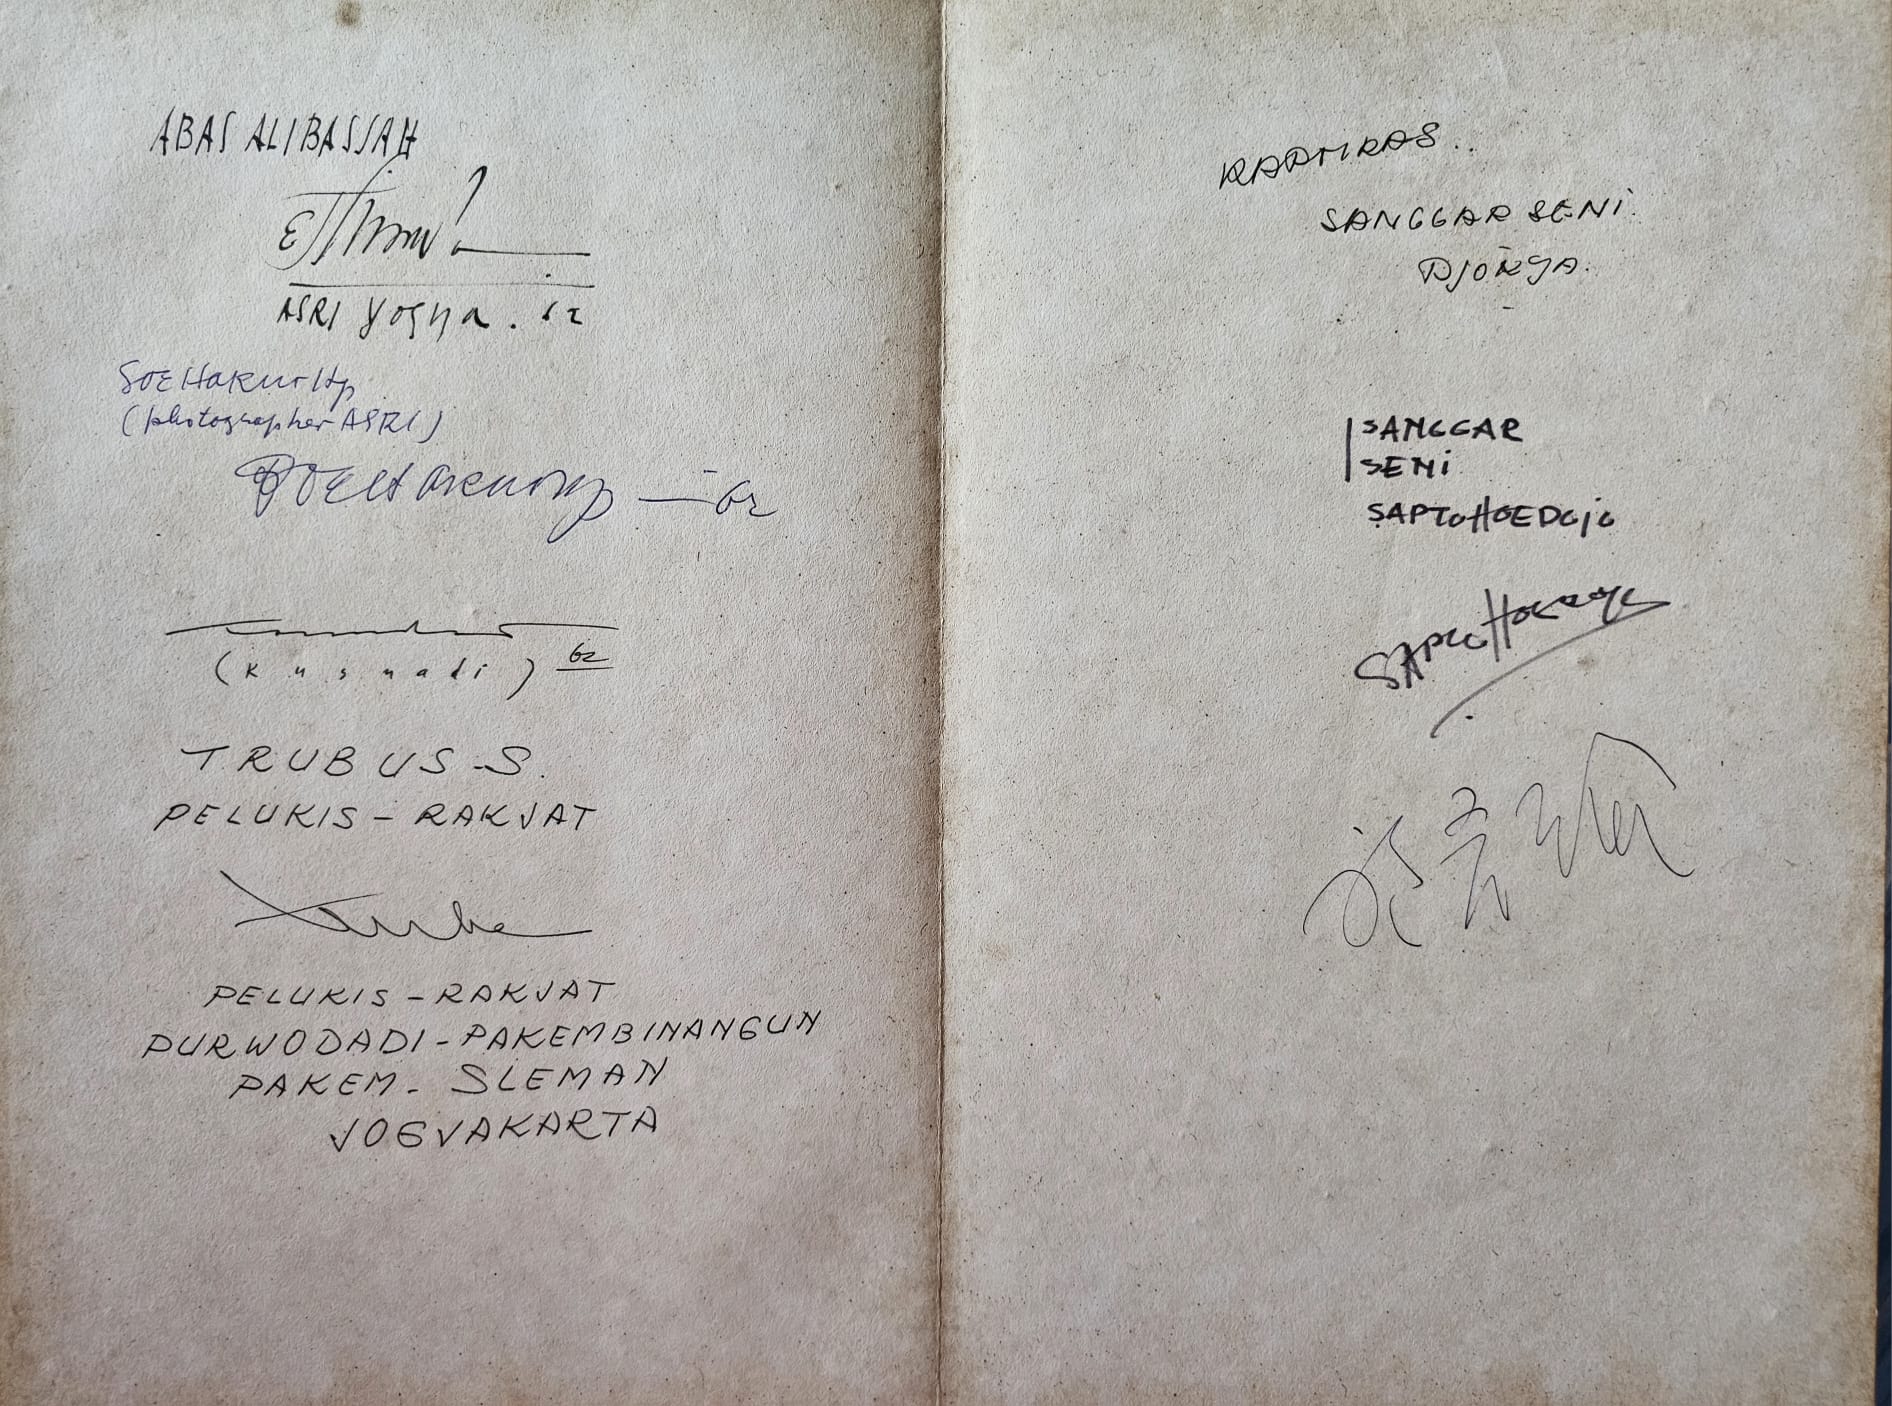 ABAS ALIBASJAH
ASRI Yogya . 62
(photographer ASRI)
62
(Kusnadi) 62
TRUBUS.S.
PELUKIS - RAKJAT
PELUKIS - RAKJAT
PURWODADI - PAKEMBINANGUN
PAKEM - SLEMAN
JOGJAKARTA
SANGGAR SENI.
DJOKJA.
SANGGAR
SENI
SAPTOHOEDOjO
SAPTOHOEDOJO